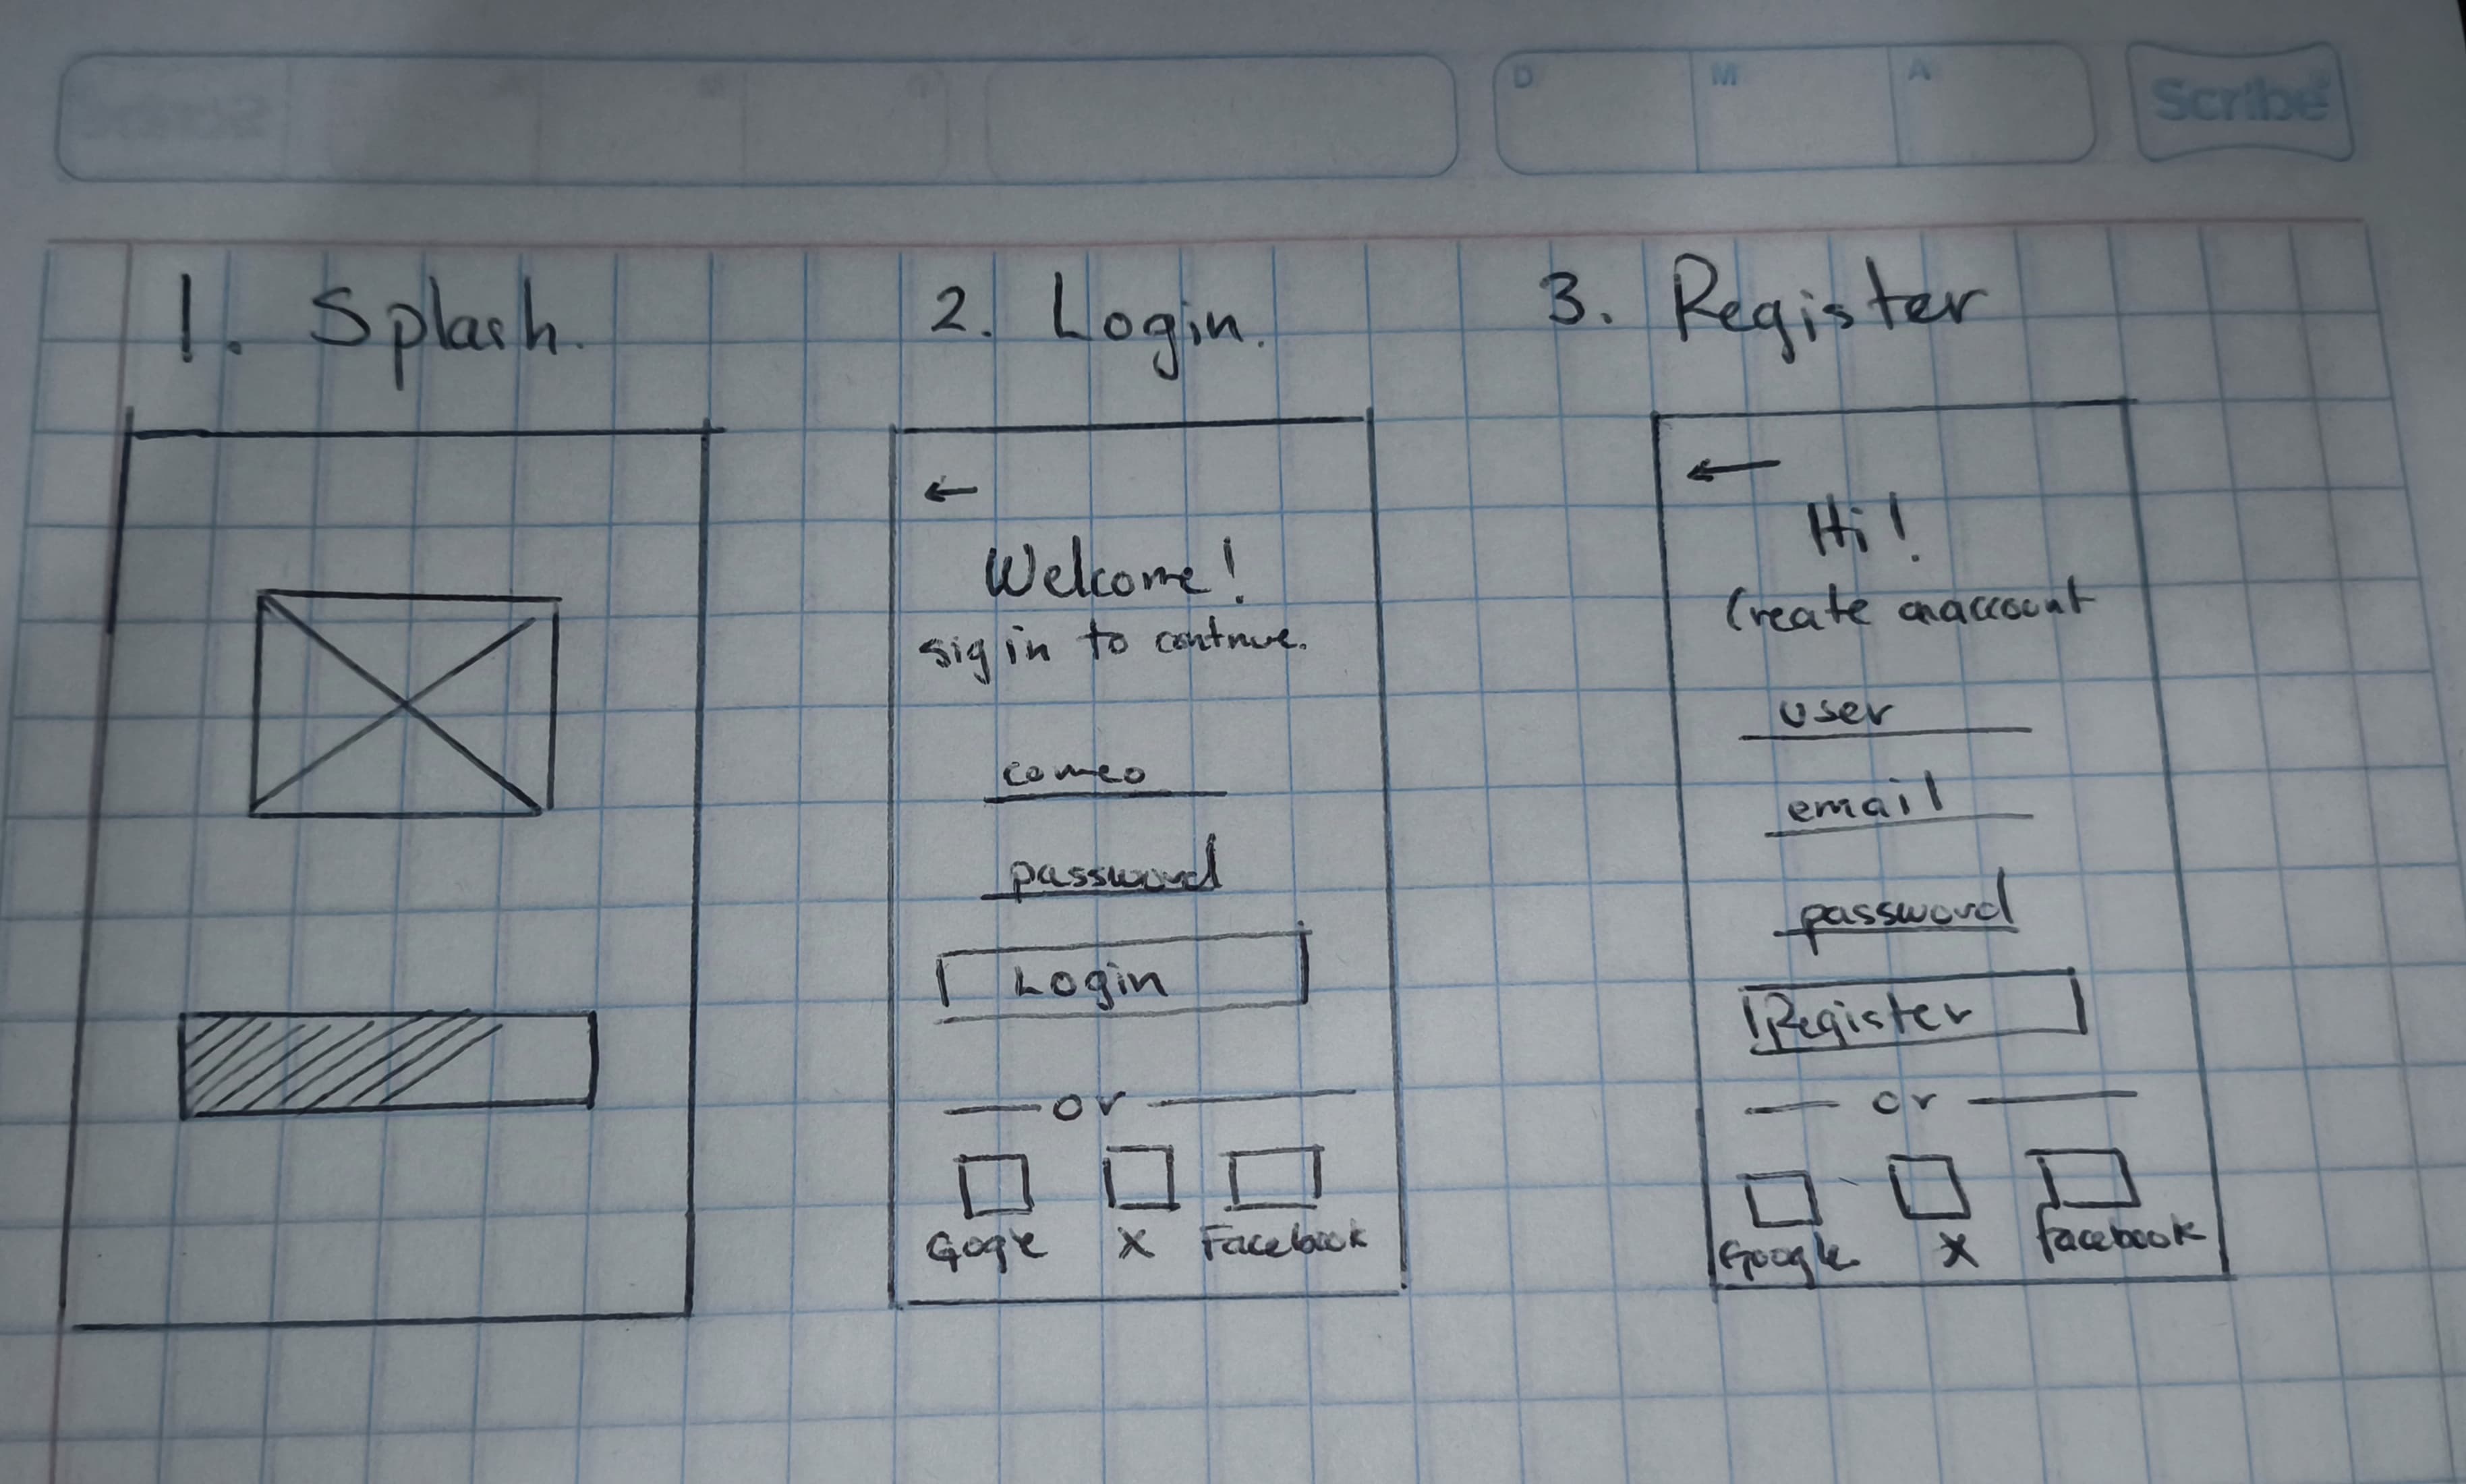 D M A Scribe
1. Splash.
2. Login.
3. Register
←
Welcome!
sig in to continue.
correo
password
Login
or
Gogle X Facebook
←
Hi!
Create an account
user
email
password
Register
or
Google X facebook